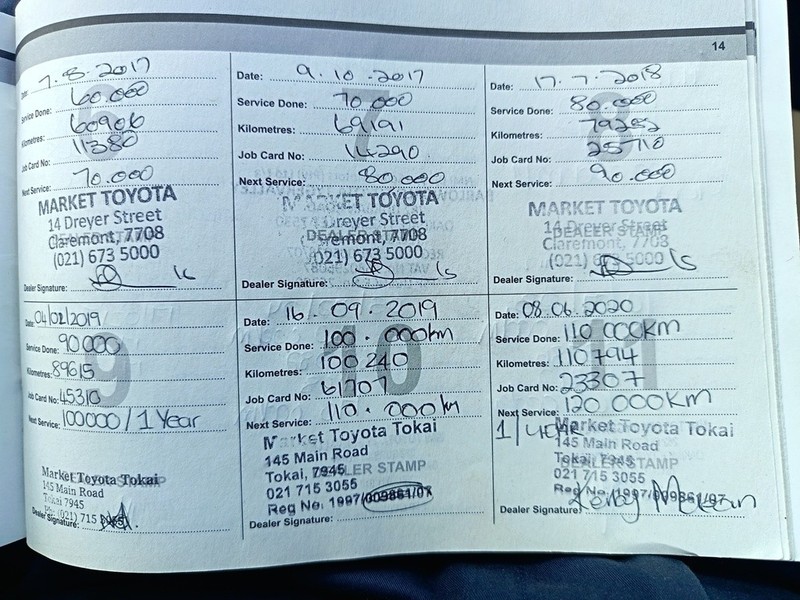 14
Date: 7.8.2017
Service Done: 60.000
Kilometres: 60906
Job Card No: 11380
Next Service: 70.000
MARKET TOYOTA
14 Dreyer Street
Claremont, 7708
(021) 673 5000
Dealer Signature:
Date: 9.10.2017
Service Done: 70.000
Kilometres: 69191
Job Card No: 14290
Next Service: 80.000
MARKET TOYOTA
Dreyer Street
DEALER STAMP
Claremont, 7708
(021) 673 5000
Dealer Signature:
Date: 17.7.2018
Service Done: 80.000
Kilometres: 79252
Job Card No: 25710
Next Service: 90.000
MARKET TOYOTA
14 Dreyer Street
DEALER STAMP
Claremont, 7708
(021) 5000
Dealer Signature:
9
Date: 04/02/2019
Service Done: 90000
Kilometres: 89615
Job Card No: 45310
Next Service: 100000/1 Year
Market Toyota Tokai
145 Main Road
Tokai 7945
(021) 715
Dealer Signature:
10
Date: 16.09.2019
Service Done: 100.000km
Kilometres: 100240
Job Card No: 61707
Next Service: 110.000km
Market Toyota Tokai
145 Main Road
Tokai, 7945
DEALER STAMP
021 715 3055
Reg No: 1997/009861/07
Dealer Signature:
11
Date: 08.06.2020
Service Done: 110 000km
Kilometres: 110794
Job Card No: 23307
Next Service: 120 000km
Market Toyota Tokai
145 Main Road
Tokai, 7945
DEALER STAMP
021 715 3055
Reg No: 1997/009861/07
Dealer Signature: